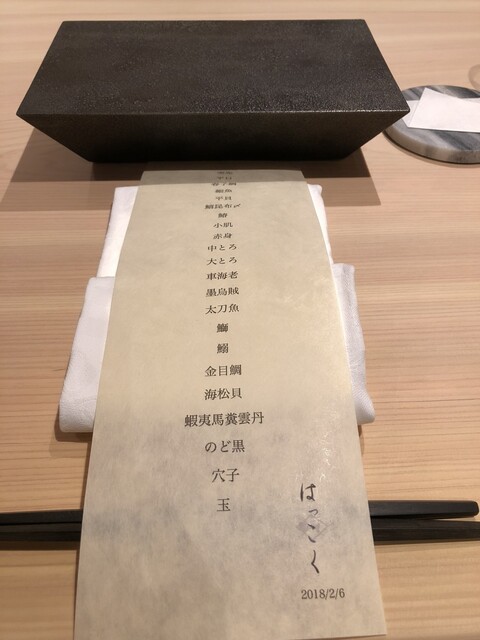 春子鯛
平貝
鰆
小肌
赤身
中とろ
大とろ
車海老
墨烏賊
太刀魚
鰤
鰯
金目鯛
海松貝
蝦夷馬糞雲丹
のど黒
穴子
玉
はっこく
2018/2/6